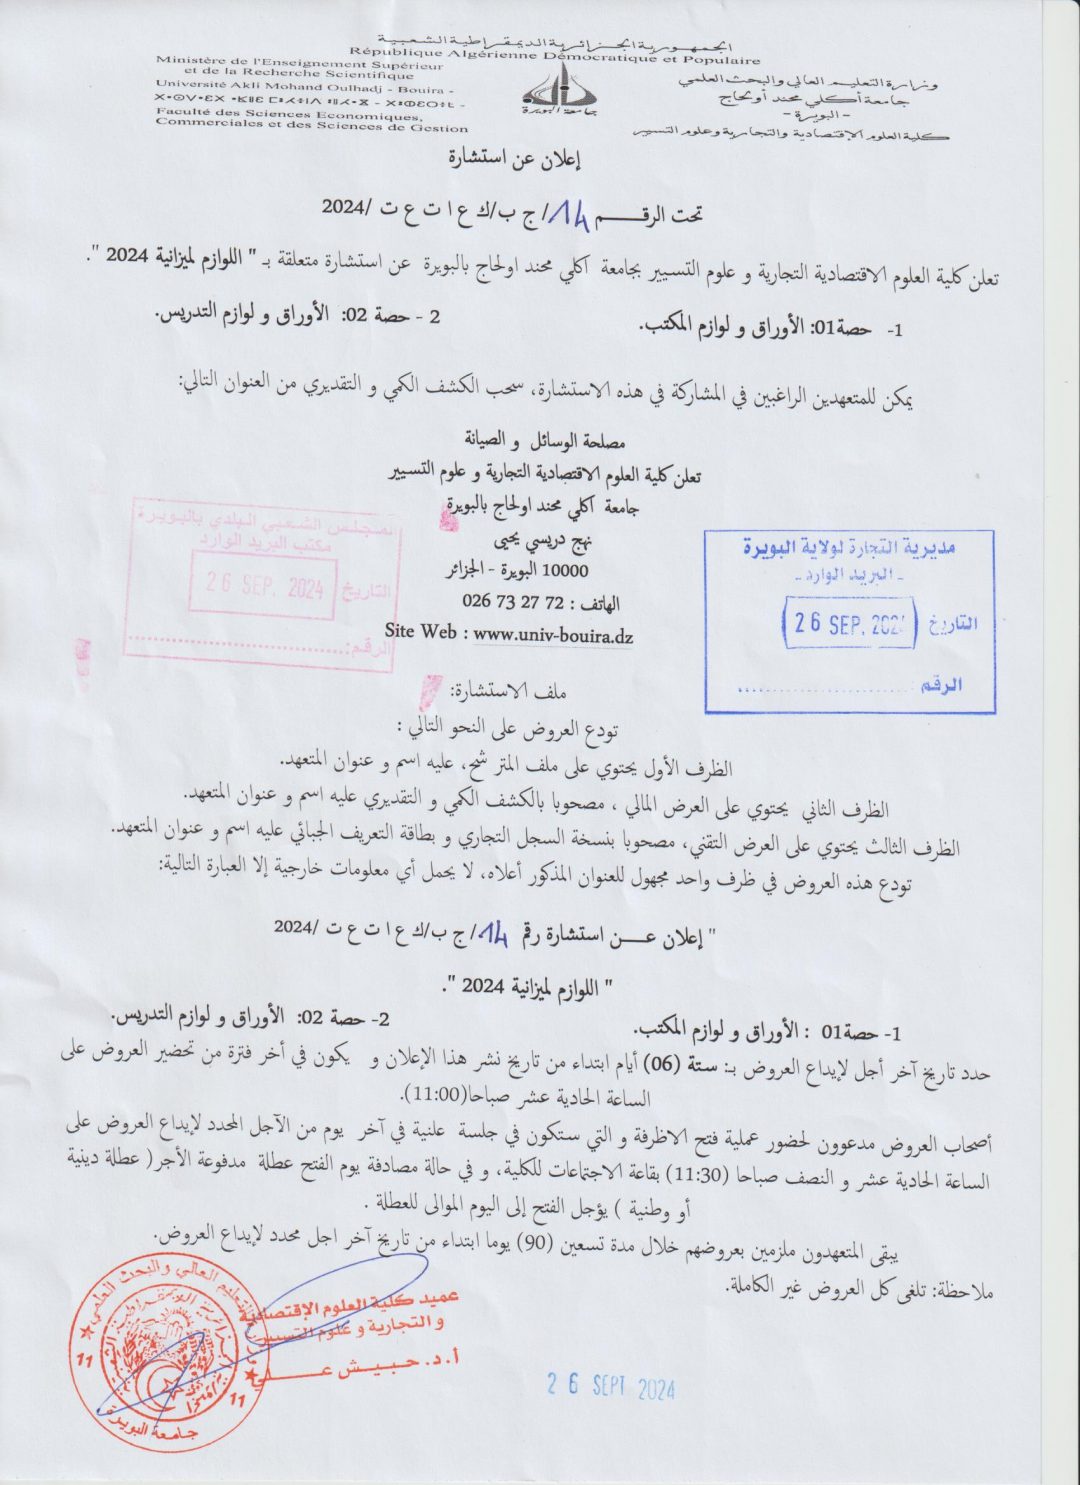 الجمهورية الجزائرية الديمقراطية الشعبية
République Algérienne Démocratique et Populaire
Ministère de l'Enseignement Supérieur
et de la Recherche Scientifique
Université Akli Mohand Oulhadj - Bouira -
Faculté des Sciences Economiques,
Commerciales et des Sciences de Gestion
جامعة البويرة
وزارة التعليم العالي والبحث العلمي
جامعة أكلي محند أولحاج
- البويرة -
كلية العلوم الإقتصادية والتجارية وعلوم التسيير
إعلان عن استشارة
تحت الرقم 14/ ج ب/ك ع ا ت ع ت /2024
تعلن كلية العلوم الاقتصادية التجارية و علوم التسيير بجامعة اكلي محند اولحاج بالبويرة عن استشارة متعلقة بـ " اللوازم لميزانية 2024 ".
1- حصة01: الأوراق و لوازم المكتب. 2 - حصة 02: الأوراق و لوازم التدريس.
يمكن للمتعهدين الراغبين في المشاركة في هذه الاستشارة، سحب الكشف الكمي و التقديري من العنوان التالي:
مصلحة الوسائل و الصيانة
تعلن كلية العلوم الاقتصادية التجارية و علوم التسيير
جامعة اكلي محند اولحاج بالبويرة
نهج دريسي يحيى
10000 البويرة - الجزائر
الهاتف : 72 27 73 026
Site Web : www.univ-bouira.dz
المجلس الشعبي البلدي بالبويرة
مكتب البريد الوارد
التاريخ 26 SEP. 2024
الرقم:
مديرية التجارة لولاية البويرة
- البريد الوارد -
التاريخ 26 SEP. 2024
الرقم
ملف الاستشارة:
تودع العروض على النحو التالي :
الظرف الأول يحتوي على ملف المترشح، عليه اسم و عنوان المتعهد.
الظرف الثاني يحتوي على العرض المالي ، مصحوبا بالكشف الكمي و التقديري عليه اسم و عنوان المتعهد.
الظرف الثالث يحتوي على العرض التقني، مصحوبا بنسخة السجل التجاري و بطاقة التعريف الجبائي عليه اسم و عنوان المتعهد.
تودع هذه العروض في ظرف واحد مجهول للعنوان المذكور أعلاه، لا يحمل أي معلومات خارجية إلا العبارة التالية:
" إعلان عن استشارة رقم 14/ ج ب/ك ع ا ت ع ت /2024
" اللوازم لميزانية 2024 ".
1- حصة01 : الأوراق و لوازم المكتب. 2- حصة 02: الأوراق و لوازم التدريس.
حدد تاريخ آخر أجل لإيداع العروض بـ: ستة (06) أيام ابتداء من تاريخ نشر هذا الإعلان و يكون في أخر فترة من تحضير العروض على
الساعة الحادية عشر صباحا(11:00).
أصحاب العروض مدعوون لحضور عملية فتح الاظرفة و التي ستكون في جلسة علنية في آخر يوم من الآجل المحدد لإيداع العروض على
الساعة الحادية عشر و النصف صباحا (11:30) بقاعة الاجتماعات للكلية، و في حالة مصادفة يوم الفتح عطلة مدفوعة الأجر( عطلة دينية
أو وطنية ) يؤجل الفتح إلى اليوم الموالى للعطلة .
يبقى المتعهدون ملزمين بعروضهم خلال مدة تسعين (90) يوما ابتداء من تاريخ آخر اجل محدد لإيداع العروض.
ملاحظة: تلغى كل العروض غير الكاملة.
عميد كلية العلوم الإقتصادية
و التجارية و علوم التسيير
أ.د. حبيش علي
11
11
جامعة البويرة
26 SEPT 2024